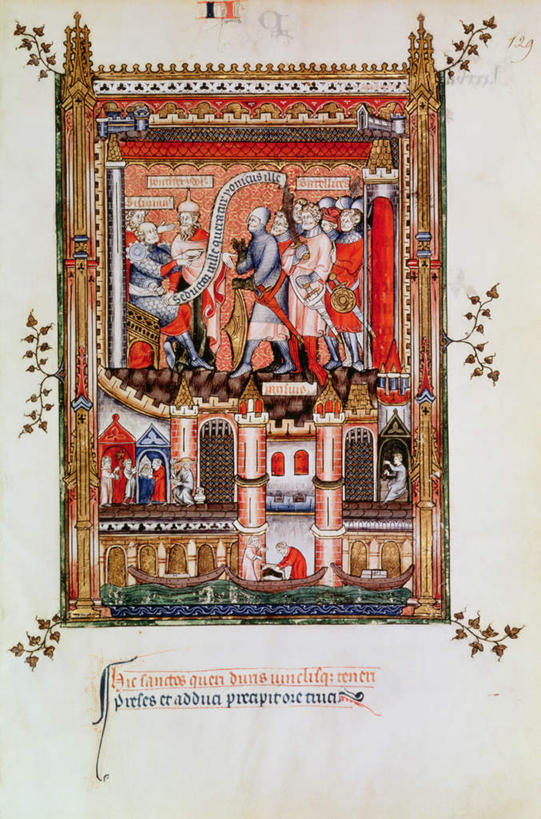 129
Sisinnius
Seductor ille queratur yonicus ille
Satellites
parisius
Hic sanctos queri duris iunclisq; teneri
Preses et adduci precipit ore truci